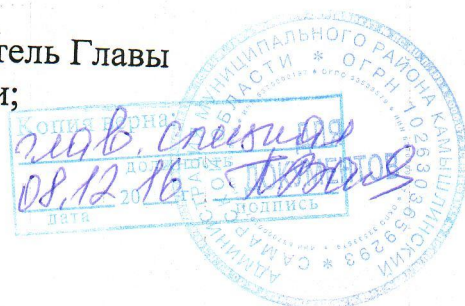 тель Главы
и;
Копия верна
глав. специал
должность
08.12.16
20 г.
дата
подпись
ДЛЯ
ДОКУМЕНТОВ
АДМИНИСТРАЦИЯ МУНИЦИПАЛЬНОГО РАЙОНА КАМЫШЛИНСКИЙ
САМАРСКОЙ ОБЛАСТИ * ОГРН 1026303659293 *